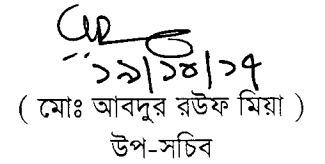 ১৯/১০/১৭
( মোঃ আবদুর রউফ মিয়া )
উপ-সচিব